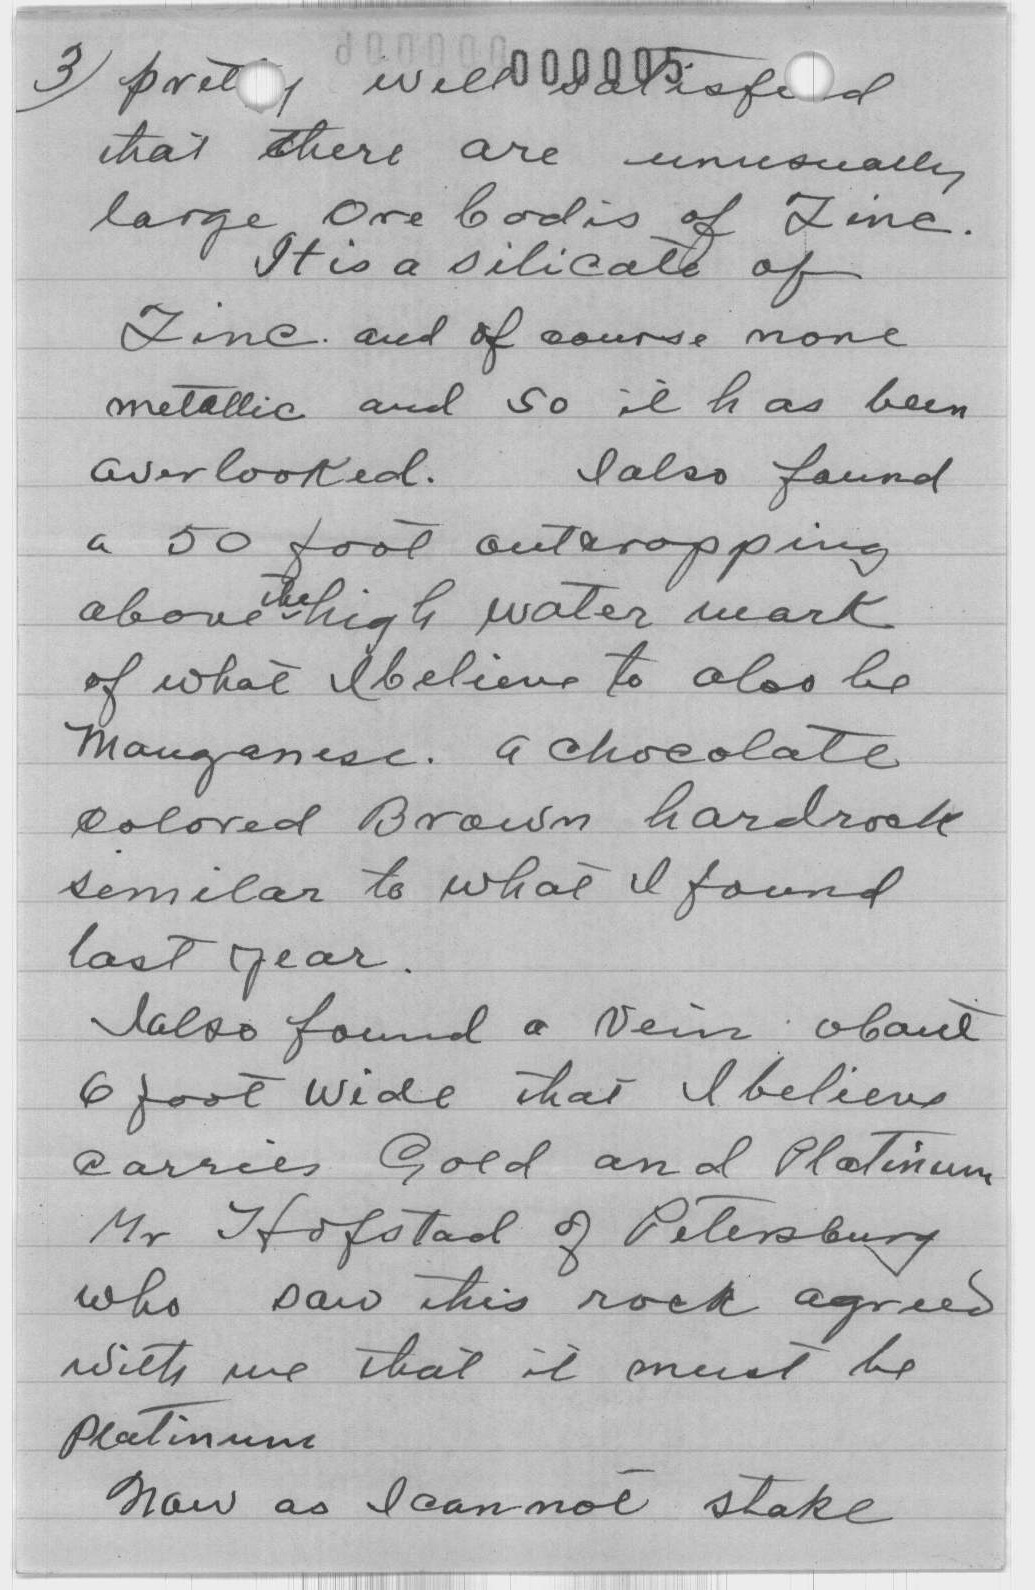 000005
3) pretty well satisfied
that there are unusually
large Ore bodis of Zinc.
It is a silicate of
Zinc. and of course none
metallic and so it has been
overlooked. I also found
a 50 foot outcropping
above the high water mark
of what I believe to also be
Manganese. a chocolate
colored Brown hardrock
similar to what I found
last year.
I also found a Vein about
6 foot wide that I believe
carries Gold and Platinum
Mr Hofstad of Petersburg
who saw this rock agreed
with me that it must be
Platinum
Now as I can not stake